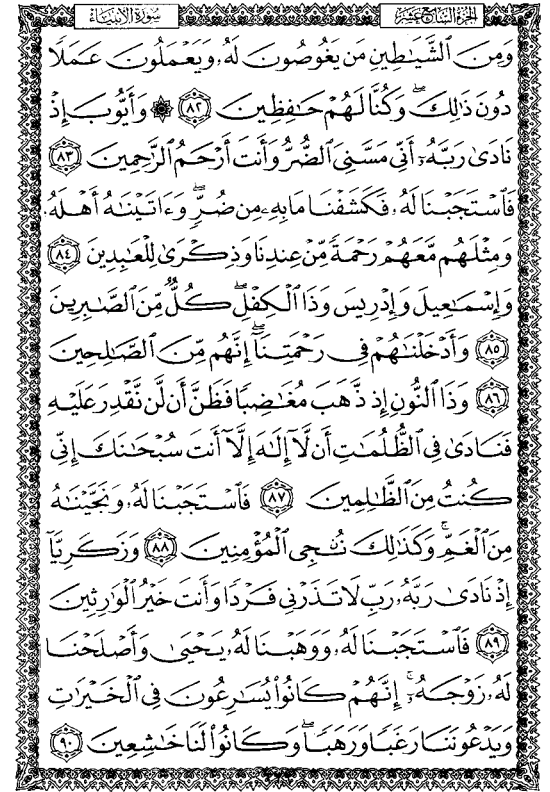 سُورَةُ الأَنْبِيَاء
الجُزْءُ السَّابِعُ عَشَرَ
وَمِنَ ٱلشَّيَٰطِينِ مَن يَغُوصُونَ لَهُۥ وَيَعْمَلُونَ عَمَلًا
دُونَ ذَٰلِكَ ۖ وَكُنَّا لَهُمْ حَٰفِظِينَ ﴿٨٢﴾ ۞ وَأَيُّوبَ إِذْ
نَادَىٰ رَبَّهُۥٓ أَنِّى مَسَّنِىَ ٱلضُّرُّ وَأَنتَ أَرْحَمُ ٱلرَّٰحِمِينَ ﴿٨٣﴾
فَٱسْتَجَبْنَا لَهُۥ فَكَشَفْنَا مَا بِهِۦ مِن ضُرٍّ ۖ وَءَاتَيْنَٰهُ أَهْلَهُۥ
وَمِثْلَهُم مَّعَهُمْ رَحْمَةً مِّنْ عِندِنَا وَذِكْرَىٰ لِلْعَٰبِدِينَ ﴿٨٤﴾
وَإِسْمَٰعِيلَ وَإِدْرِيسَ وَذَا ٱلْكِفْلِ ۖ كُلٌّ مِّنَ ٱلصَّٰبِرِينَ
﴿٨٥﴾ وَأَدْخَلْنَٰهُمْ فِى رَحْمَتِنَآ ۖ إِنَّهُم مِّنَ ٱلصَّٰلِحِينَ
﴿٨٦﴾ وَذَا ٱلنُّونِ إِذ ذَّهَبَ مُغَٰضِبًا فَظَنَّ أَن لَّن نَّقْدِرَ عَلَيْهِ
فَنَادَىٰ فِى ٱلظُّلُمَٰتِ أَن لَّآ إِلَٰهَ إِلَّآ أَنتَ سُبْحَٰنَكَ إِنِّى
كُنتُ مِنَ ٱلظَّٰلِمِينَ ﴿٨٧﴾ فَٱسْتَجَبْنَا لَهُۥ وَنَجَّيْنَٰهُ
مِنَ ٱلْغَمِّ ۚ وَكَذَٰلِكَ نُۨجِى ٱلْمُؤْمِنِينَ ﴿٨٨﴾ وَزَكَرِيَّآ
إِذْ نَادَىٰ رَبَّهُۥ رَبِّ لَا تَذَرْنِى فَرْدًا وَأَنتَ خَيْرُ ٱلْوَٰرِثِينَ
﴿٨٩﴾ فَٱسْتَجَبْنَا لَهُۥ وَوَهَبْنَا لَهُۥ يَحْيَىٰ وَأَصْلَحْنَا
لَهُۥ زَوْجَهُۥٓ ۚ إِنَّهُمْ كَانُوا۟ يُسَٰرِعُونَ فِى ٱلْخَيْرَٰتِ
وَيَدْعُونَنَا رَغَبًا وَرَهَبًا ۖ وَكَانُوا۟ لَنَا خَٰشِعِينَ ﴿٩٠﴾